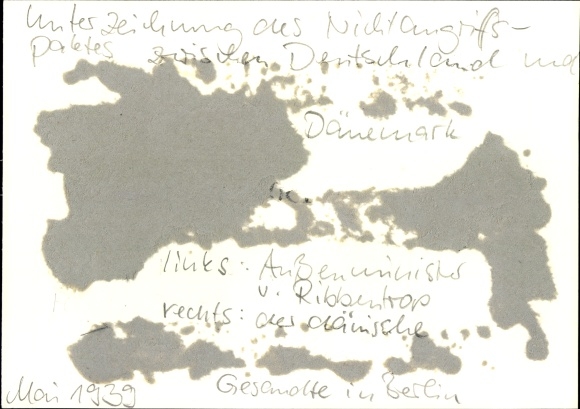 Unterzeichnung des Nichtangriffs-
paktes zwischen Deutschland und
Dänemark
links: Außenminister
v. Ribbentrop
rechts: der dänische
Gesandte in Berlin
Mai 1939